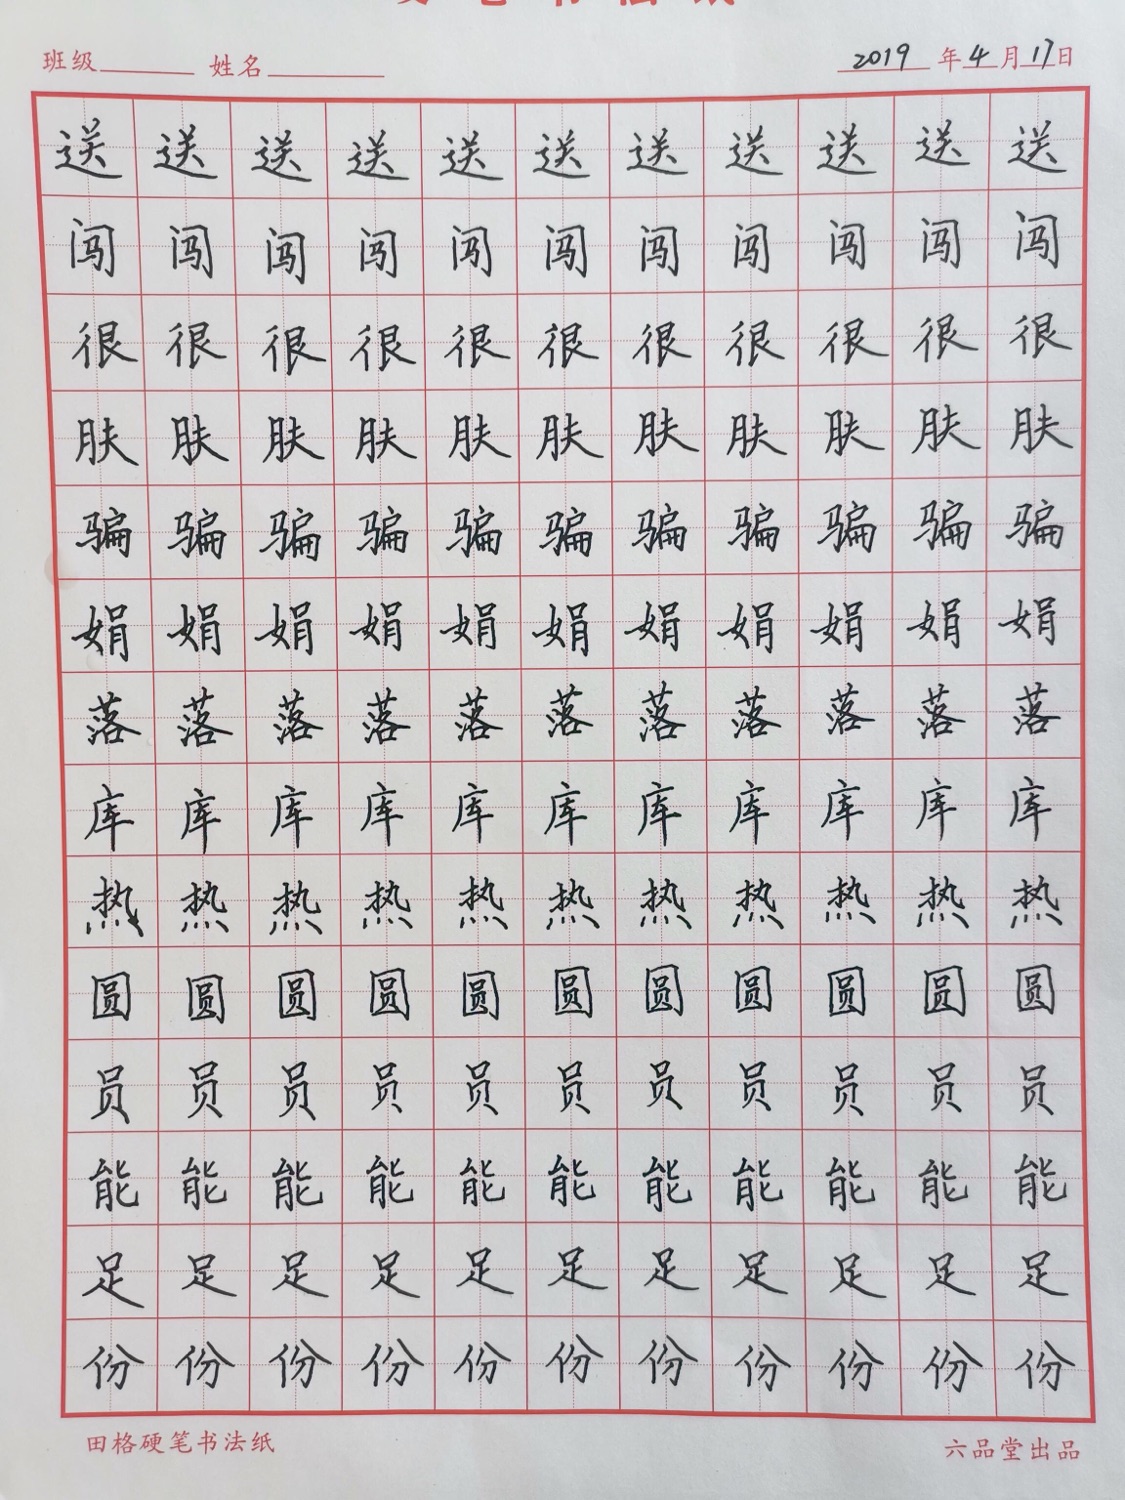 班级 姓名 2019年4月17日
送送送送送送送送送送送
闯闯闯闯闯闯闯闯闯闯闯
很很很很很很很很很很很
肤肤肤肤肤肤肤肤肤肤肤
骗骗骗骗骗骗骗骗骗骗骗
娟娟娟娟娟娟娟娟娟娟娟
落落落落落落落落落落落
库库库库库库库库库库库
热热热热热热热热热热热
圆圆圆圆圆圆圆圆圆圆圆
员员员员员员员员员员员
能能能能能能能能能能能
足足足足足足足足足足足
份份份份份份份份份份份
田格硬笔书法纸 六品堂出品